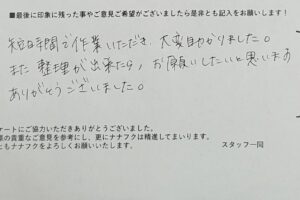 ■最後に印象に残った事やご意見ご希望がございましたら是非とも記入をお願いします！
短時間で作業いただき、大変助かりました。
また整理が出来たら、お願いしたいと思います
ありがとうございました。
ケートにご協力いただきありがとうございました。
様の貴重なご意見を参考にし、更にナナフクは精進してまいります。
ともナナフクをよろしくお願いいたします。
スタッフ一同